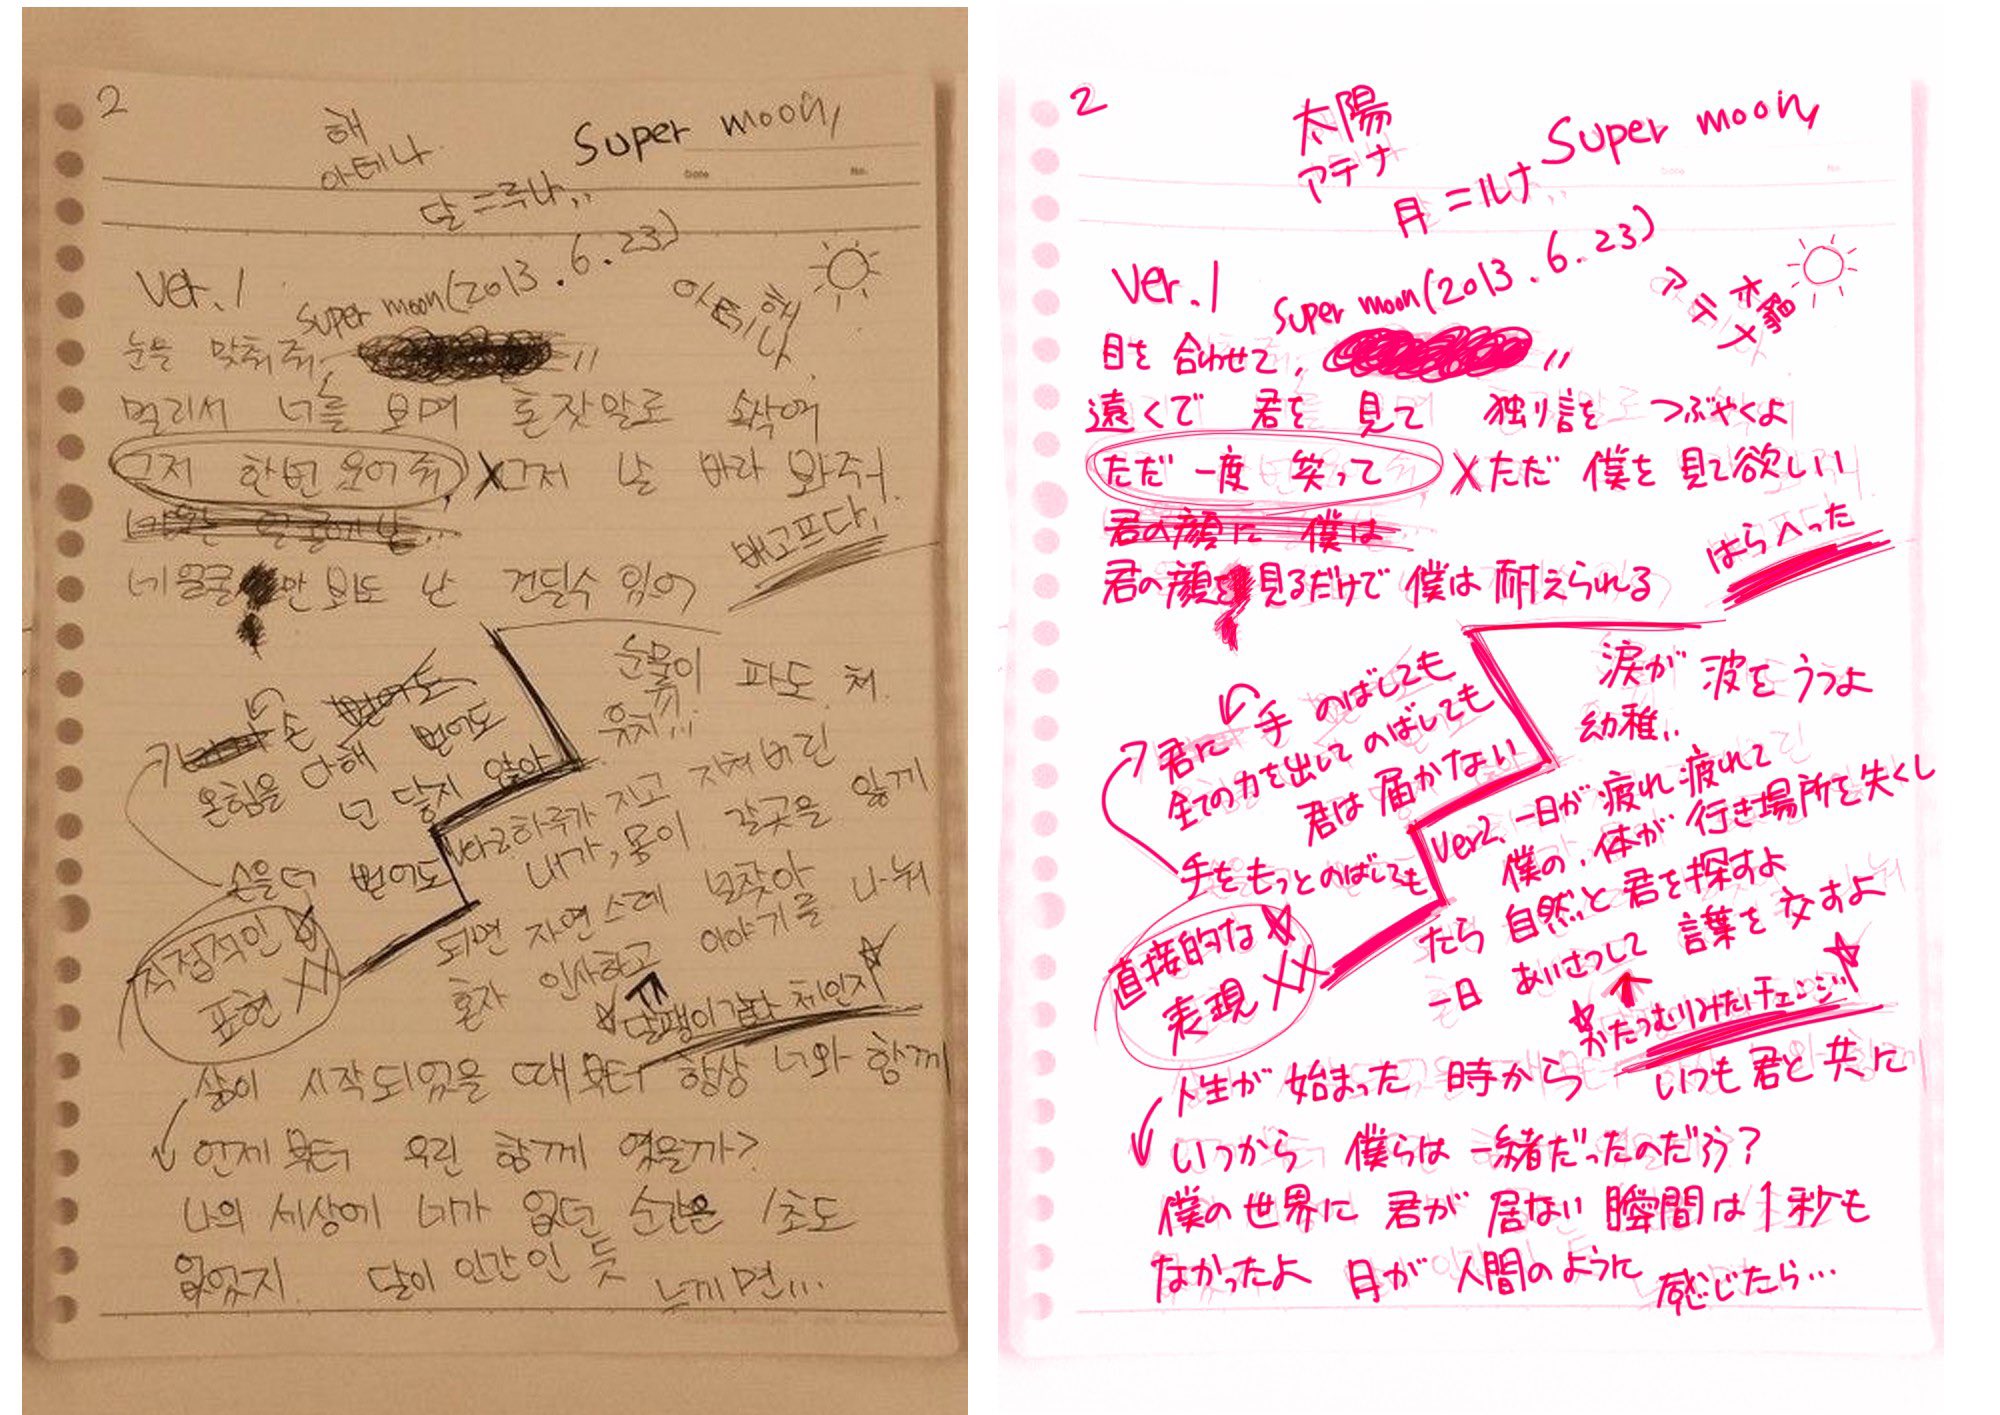 2
해
아테나
Super moon,
달=루나,,
Ver.1
Super moon(2013.6.23)
아테나
해
눈을 맞춰줘,
멀리서 너를 보며 혼잣말로 속삭여
그저 한번 웃어줘, X그저 날 바라 봐줘.
배고프다.
네 얼굴만 봐도 난 견딜수 있어
눈물이 파도 쳐.
유치..
손 뻗어도
온힘을 다해 뻗어도
넌 닿지 않아
손을 더 뻗어도
직접적인
표현 XX
하루가 지고 지쳐버린
내가, 몸이 갈곳을 잃게
되면 자연스레 널찾아
혼자 인사하고 이야기를 나눠
달팽이같다 체인지
삶이 시작되었을 때 부터 항상 너와 함께
언제 부터 우린 함께 였을까?
나의 세상에 네가 없던 순간은 1초도
없었지. 달이 인간인 듯 느끼면...
2
太陽
アテナ
Super moon,
月=ルナ,,
Ver.1
Super moon(2013.6.23)
アテナ
太陽
目を合わせて,
遠くで 君を 見て 独り言を つぶやくよ
ただ 一度 笑って Xただ 僕を 見て欲しい
君の顔に 僕は
はら入った
君の顔を見るだけで 僕は 耐えられる
涙が 波をうつよ
幼稚..
君に 手 のばしても
全ての力を出して のばしても
君は 届かない
手をもっとのばしても
直接的な
表現 XX
Ver2. 一日が 疲れ 疲れて
僕の,体が 行き場所を失くし
たら 自然と 君を探すよ
一日 あいさつして 言葉を 交すよ
かたつむりみたいチェンジ
人生が 始まった 時から いつも 君と 共に
いつから 僕らは 一緒だったのだろう?
僕の世界に 君が 居ない 瞬間は 1秒も
なかったよ 月が 人間のように 感じたら...